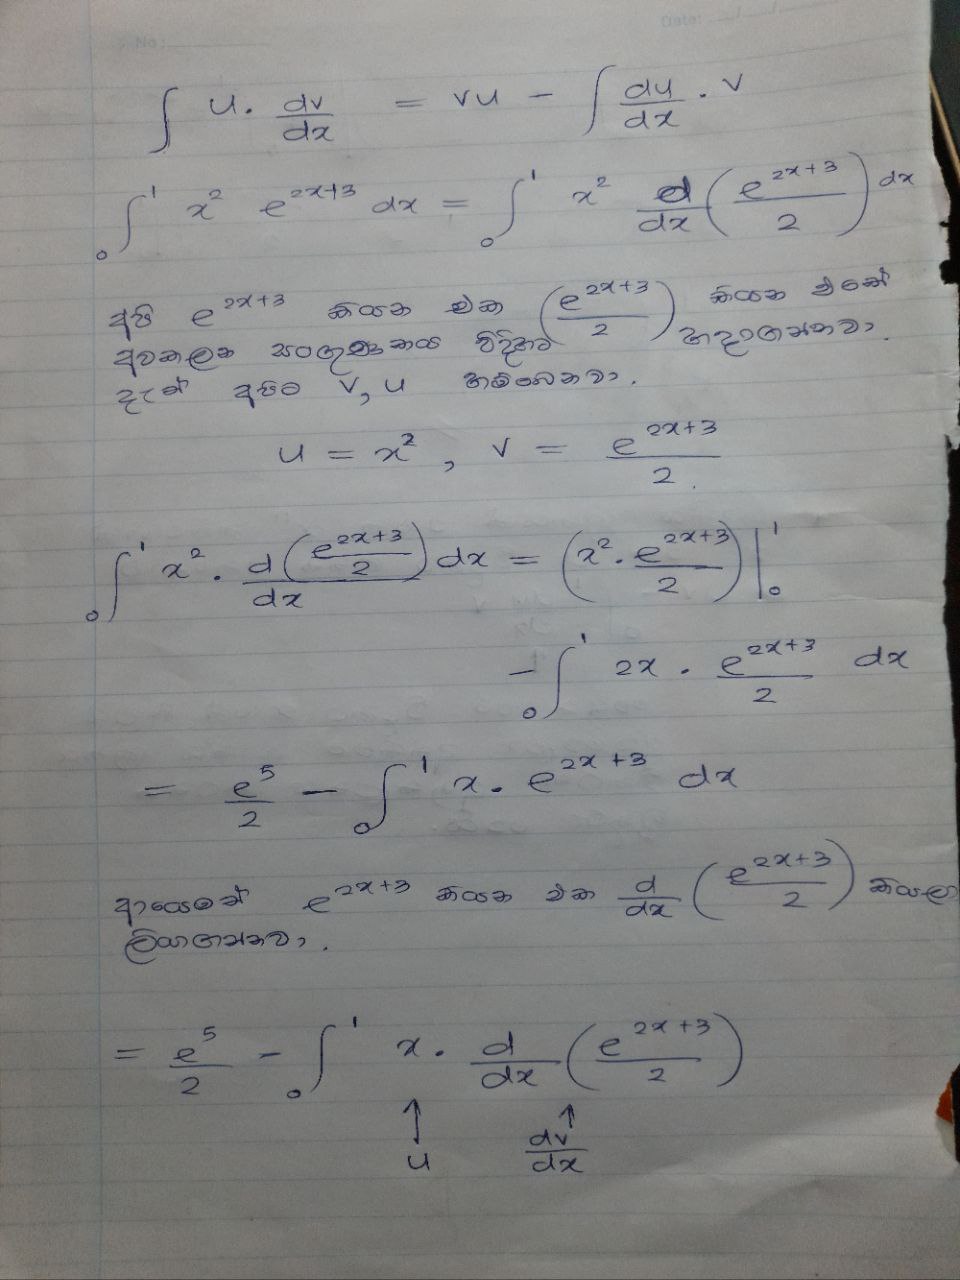 No:
Date: / /
∫ u. dv/dx = vu - ∫ du/dx . v
₀∫¹ x² e^(2x+3) dx = ₀∫¹ x² d/dx (e^(2x+3)/2) dx
අපි e^(2x+3) කියන එක (e^(2x+3)/2) කියන එකේ
අවකලන සංගුණකය විදිහට හදාගන්නවා.
දැන් අපිට v, u හම්බෙනවා.
u = x² , v = e^(2x+3)/2.
₀∫¹ x² . d(e^(2x+3)/2)/dx dx = (x² . e^(2x+3)/2)|₀¹
- ₀∫¹ 2x . e^(2x+3)/2 dx
= e⁵/2 - ₀∫¹ x. e^(2x+3) dx
ආයෙමත් e^(2x+3) කියන එක d/dx (e^(2x+3)/2) කියලා
ලියාගන්නවා.
= e⁵/2 - ₀∫¹ x. d/dx (e^(2x+3)/2)
↑ ↑
u dv/dx